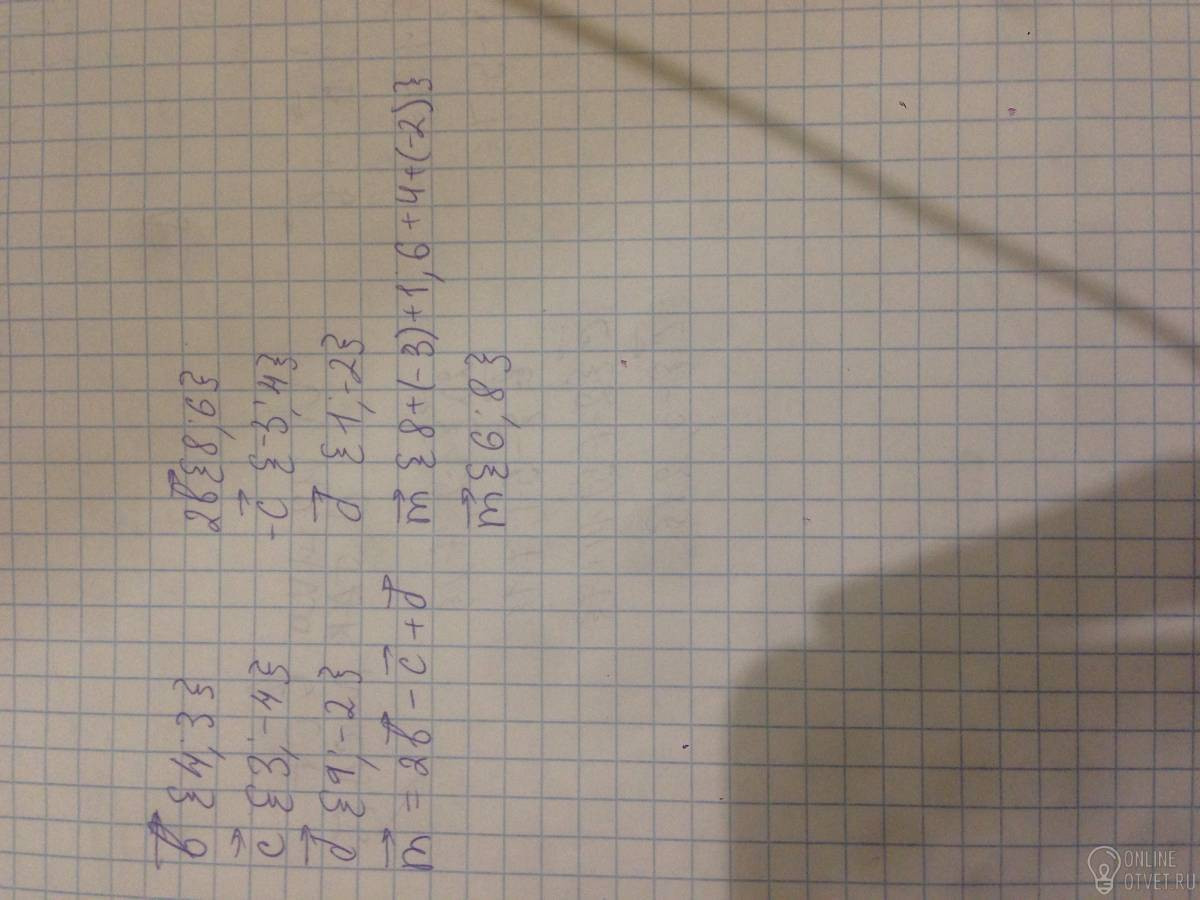 b⃗ {4; 3}
c⃗ {3; -4}
d⃗ {1; -2}
m⃗ = 2b⃗ - c⃗ + d⃗
2b⃗ {8; 6}
-c⃗ {-3; 4}
d⃗ {1; -2}
m⃗ {8+(-3)+1; 6+4+(-2)}
m⃗ {6; 8}
ONLINE
OTVET.RU